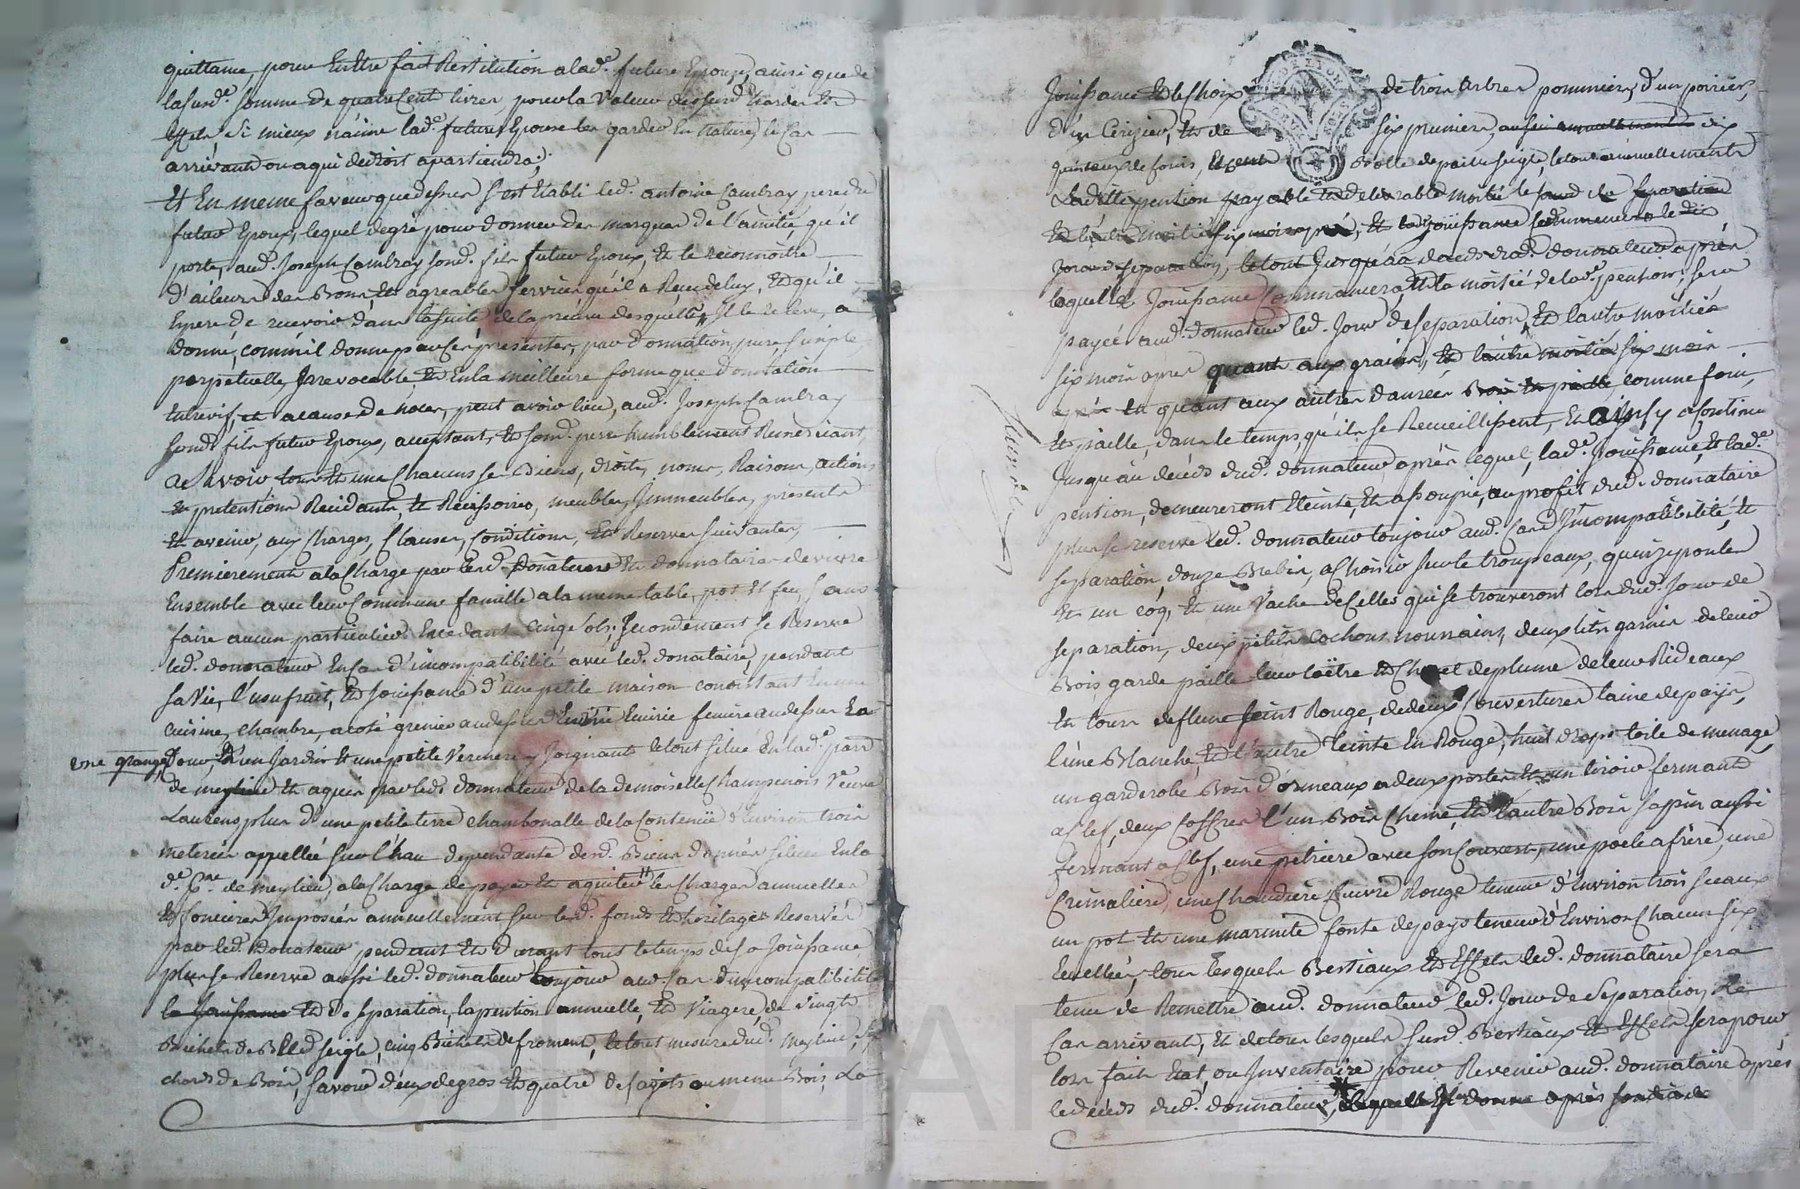 quittance, pour Enêtre fait Restitution a lad.e future Epouze, ainsi que de
lasusd.e somme de quatre Cent livres, pour la Valeur desusd. hardes Et
Effets Si mieux n'aime lad.e future Epouse les garder En Nature, le Cas
arrivant ou a qui de droit apartiendra;
Et En meme faveur que dessus s'est Etabli led. antoine Cambray pere du
futur Epoux, lequel de gré pour donner des marques de l'amitié, qu'il
porte, aud. Joseph Cambray sond. fils futur Epoux, Et le reconnoitre
d'ailleurs des Bons Et agreables services qu'il a Reçu de luy, Et qu'il
Espere de recevoir dans la suite, de la preuve desquels Il le releve, a
donné, comm'il donne par Ces presentes, par Donnation, pure simple
perpetuelle, Irrevocable, Et En la meilleure forme que Donnation
Entrevifs, et a cause de noces, peut avoir lieu, aud. Joseph Cambray
sond. fils futur Epoux, acceptant, Et sond. pere humblement Remerciant,
a Sçavoir, tous Et uns Chacuns ses Biens, droits, noms, Raisons, actions
Et pretentions Recidants, Et Recisoires, meubles, Immeubles, presents
Et avenir, aux Charges, Clauses, Conditions, Et Reserves suivantes,
Premierement a la Charge par lesd. Donateur Et donnataire de vivre
Ensemble avec leur Commune famille, a la meme table, pot Et feu, sans
faire aucun particulier Excedant Cinq sols; Secondement se Reserve
led. donnateur En Cas d'incompatibilité avec led. donnataire, pendant
sa Vie, l'usufruit, Et Jouissance d'une petite maison consistant En une
cuisine, chambre, a coté grenier au dessus Ecurie feniere au dessus La
une grange
Cour, Et un Jardin Et une petite Verchere y Joignant Letout situé En lad.e parr
de meylieu Et aquis par led. donnateur de la demoiselle Champenois Veuve
Laurens plus d'une petite terre chambonalle de la Contenüe d'Environ trois
meterées appellée sur l'hau dependante desd. Biens donnés située En la
d.e p.sse de meylieu, a la Charge de payer Et aquiter les Charges annuelles
Et foncieres Imposées annuellement sur lesd. fonds Et heritages Reservés
par led. Donateur pendant Et Durant tous le temps de sa Jouissance
plus se Reserve aussi led. donnateur toujour aud. Cas d'incompatibilité
la Jouissance Et de separation, la pention annuelle, Et Viagere, de Vingt
Bichets de Bled seigle, cinq Bichets de froment, Letout mesure dud. Meylieu, six
chards de Bois, savoir deux de gros Et quatre de fagots ou menu Bois, La
Jouissance Et le Choix de trois Arbres pommiers, d'un poirier,
d'un Cerizier, Et de six pruniers, aussi annuellement dix
quintaux de foins, Et cent Bottes de paille seigle, letout annuellement
Ladite pention payable Et delivrable moitié le jour de la separation
Et l'autre moitié six mois après, Et lad. Jouissance Commencera le dit
Jour de separation, letout Jusqu'au deceds dud. donnateur après
laquelle Jouissance Commencera, Et la moitié de lad.e pention, sera
payée aud. donnateur led. Jour de separation, Et l'autre moitiés
six mois après quant aux grains, Et l'autre moitié six mois
après Et quant aux autres danrées Bois Et paille comme foin,
Et paille, dans le temps, qu'ils se Recueillessent, En ainsy a Continuer
Jusqu'au deceds dud. donnateur après lequel, lad.e Jouissance Et lad.e
pention, demeureront Eteinte, Et assoupie, au profit dud. donnataire
plus se reserve led. donnateur toujour aud. Cas d'Incompatibilité Et
separation, douze Brebis, a Choisir sur le troupeaux, quinze poules
Et un Coq, Et une Vache de Celles qui se trouveront lors dud. Jour de
separation, deux petits Cochons nourrains, deux lits garnis de leur
Bois, garde paille leur Coëtre Et Chevet de plume de leur Rideaux
Et tours de flene teint Rouge, de deux Couvertures laine de pays,
l'une Blanche, Et l'autre teinte En Rouge, huit draps toile de menage,
un garderobe Bois d'ormeaux a deux portes Et un tiroir fermant
a Clef, deux Coffres l'un Bois Chene, Et l'autre Bois sapin aussi
fermant a Clef, une petriere avec son Couvert, une poele a frire, une
Crimaliere, une Chaudiere Cuivre Rouge teneur d'Environ trois seaux
un pot Et une marmite fonte de pays teneur d'Environ Chacun six
Ecuelles, tous lesquels Bestiaux Et Effets led. donnataire sera
tenu de Remettre aud. donnateur led. Jour de Separation, Le
Cas arrivant, Et de tous lesquels susd. Bestiaux Et Effets sera pour
lors fait Etat, ou Inventaire pour Revenir aud. donnataire après
le deceds dud. donnateur,